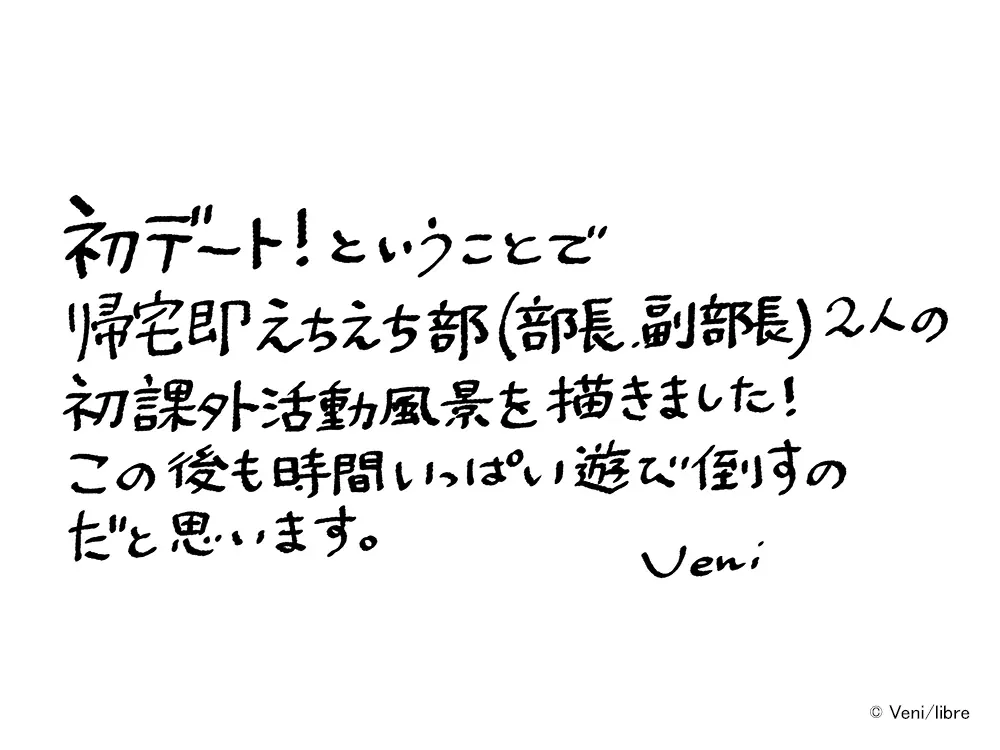 初デート!ということで
帰宅即えちえち部(部長.副部長)2人の
初課外活動風景を描きました!
この後も時間いっぱい遊び倒すの
だと思います。
Veni
© Veni/libre